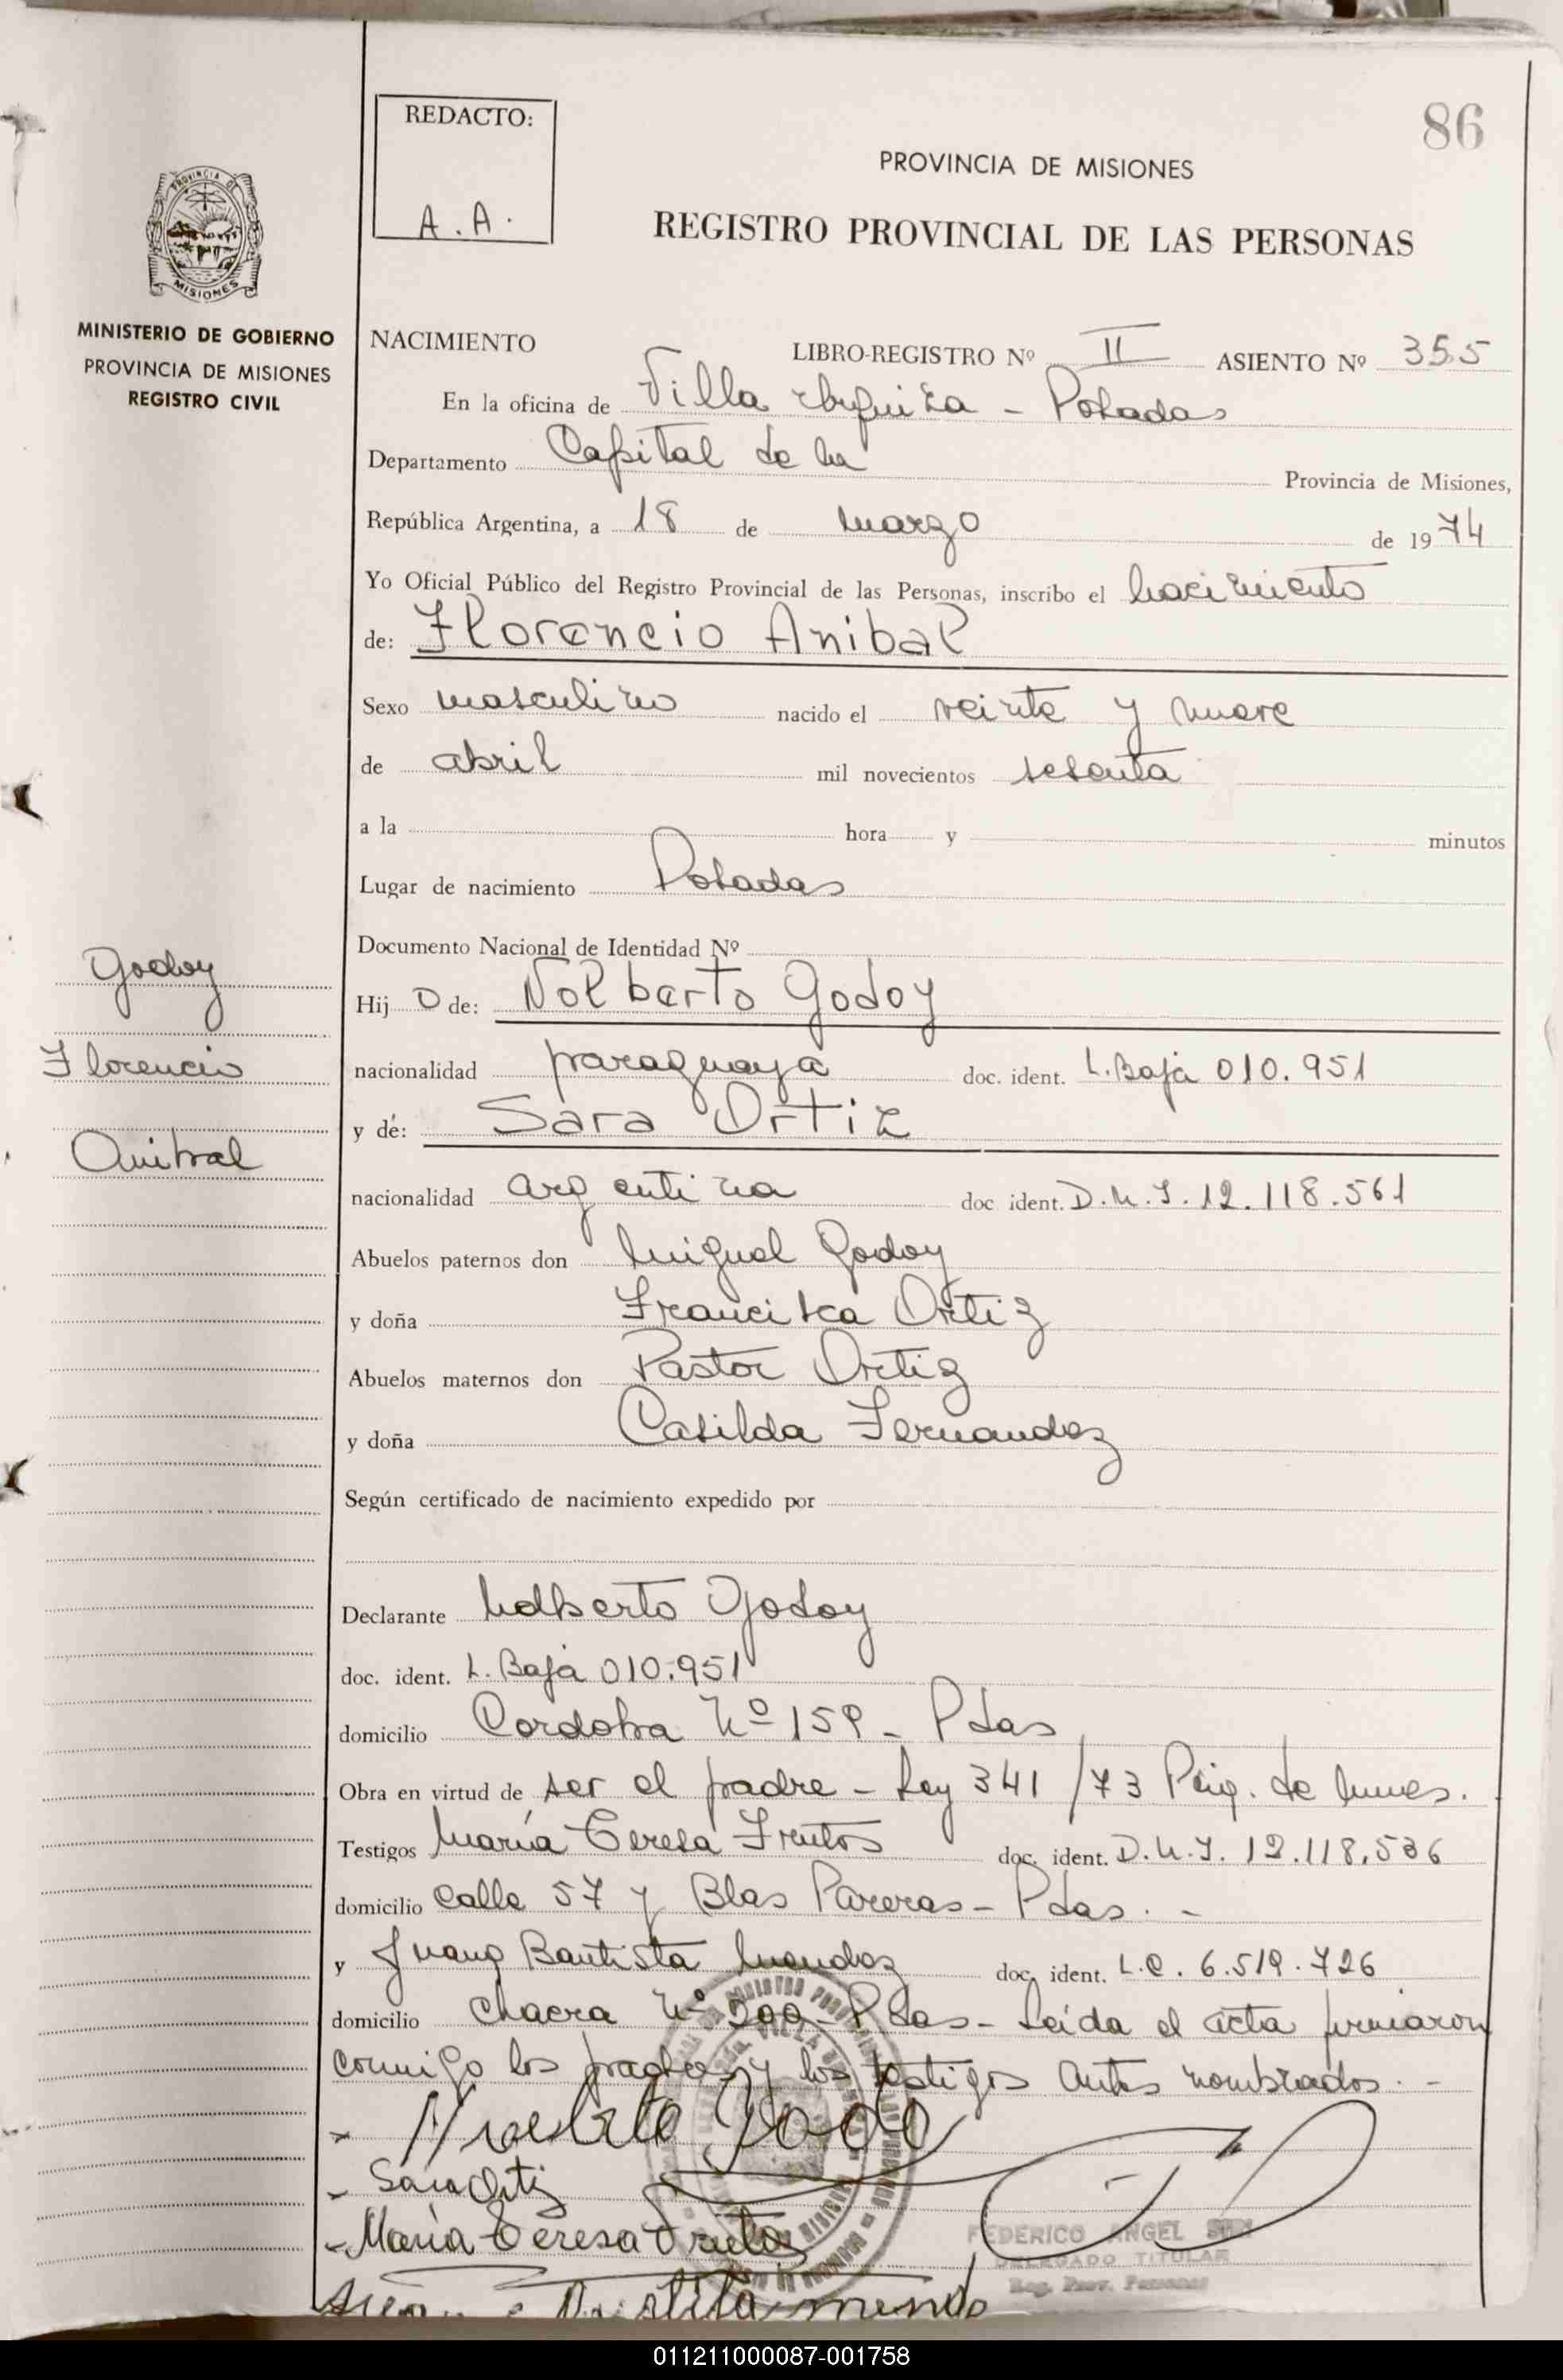 86
REDACTO:
A.A.
PROVINCIA DE MISIONES
REGISTRO PROVINCIAL DE LAS PERSONAS
PROVINCIA DE
MISIONES
MINISTERIO DE GOBIERNO
PROVINCIA DE MISIONES
REGISTRO CIVIL
NACIMIENTO LIBRO-REGISTRO Nº II ASIENTO Nº 355
En la oficina de Villa Urquiza - Posadas
Departamento Capital de la Provincia de Misiones,
República Argentina, a 18 de marzo de 1974
Yo Oficial Público del Registro Provincial de las Personas, inscribo el nacimiento
de: Florencio Anibal
Sexo masculino nacido el veinte y nueve
de abril mil novecientos sesenta
a la hora y minutos
Lugar de nacimiento Posadas
Documento Nacional de Identidad Nº
Godoy
Florencio
Anibal
Hij o de: Nolberto Godoy
nacionalidad paraguaya doc. ident. L. Baja 010.951
y de: Sara Ortiz
nacionalidad argentina doc ident. D.N.I. 12.118.561
Abuelos paternos don Miguel Godoy
y doña Francisca Ortiz
Abuelos maternos don Pastor Ortiz
y doña Casilda Fernandez
Según certificado de nacimiento expedido por
Declarante Nolberto Godoy
doc. ident. L. Baja 010.951
domicilio Cordoba Nº 159 - Pdas
Obra en virtud de ser el padre - Ley 341/73
Testigos María Teresa Frutos doc. ident. D.N.I. 12.118.536
domicilio Calle 57 y Blas Pareras - Pdas. -
y Juan Bautista Mendez doc. ident. L.E. 6.519.726
domicilio Chacra Nº 200 - Pdas - Leída el acta firmaron
conmigo los padres y los testigos antes nombrados. -
Sara Ortiz
María Teresa Frutos
FEDERICO ANGEL
DELEGADO TITULAR
Reg. Prov. Personas
011211000087-001758